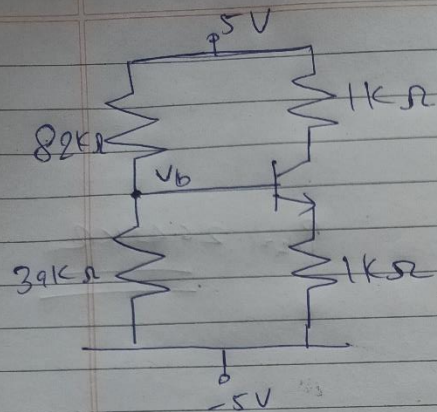 5 V
82KΩ
1KΩ
Vb
39KΩ
1KΩ
-5V